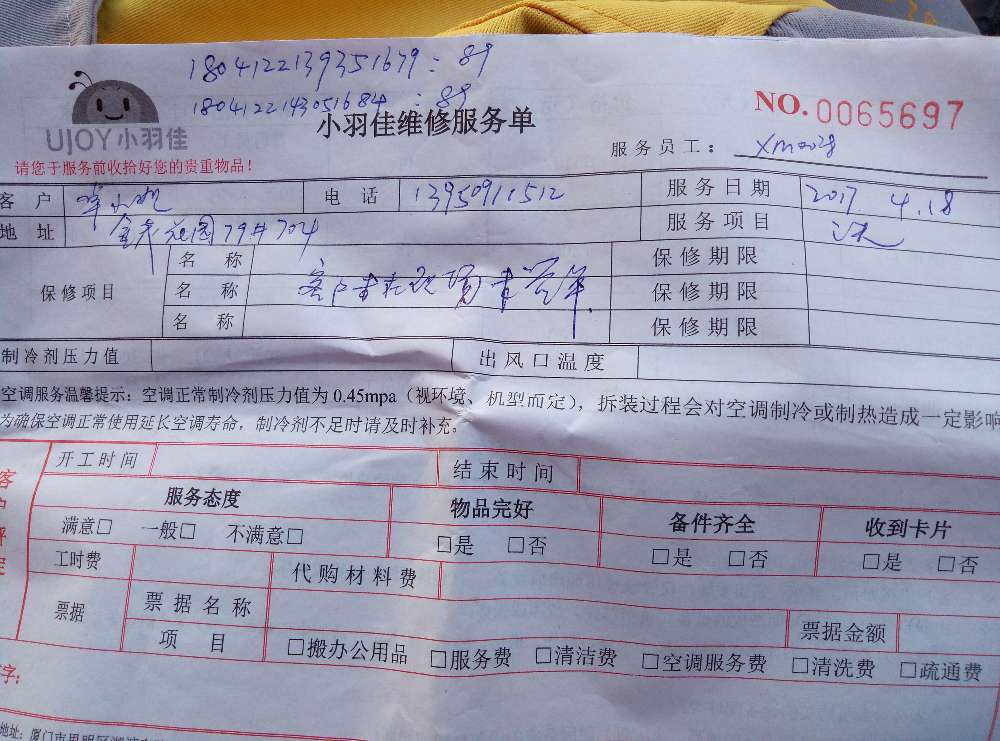 1804122139351679：89
1804122143051684：89
UJOY小羽佳
小羽佳维修服务单
NO.0065697
请您于服务前收拾好您的贵重物品！
服务员工：Xm0028
客 户
电 话 13950911512
服务日期 2017 4.18
地 址 花园79#704
服务项目
保修项目
名 称
保修期限
名 称
保修期限
名 称
保修期限
制冷剂压力值
出风口温度
空调服务温馨提示：空调正常制冷剂压力值为0.45mpa（视环境、机型而定），拆装过程会对空调制冷或制热造成一定影响
为确保空调正常使用延长空调寿命，制冷剂不足时请及时补充。
开工时间
结束时间
服务态度 物品完好 备件齐全 收到卡片
满意□ 一般□ 不满意□ □是 □否 □是 □否 □是 □否
工时费
代购材料费
票据
票据名称
票据金额
项 目
□搬办公用品 □服务费 □清洁费 □空调服务费 □清洗费 □疏通费
字：
地址：厦门市思明区